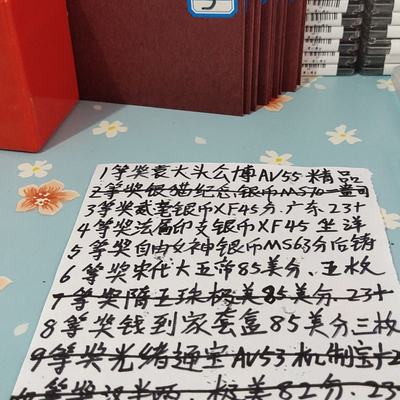 1等奖袁大头公博AV55精品
2等奖银猫纪念银币MS70一盎司
3等奖贰毫银币XF45分.广东.23+
4等奖法属印支银币XF45坐洋
5等奖自由女神银币MS63分后铸
6等奖宋代大五帝85美分.五枚
7等奖隋五珠极美85美分.23+
8等奖钱到家套盒85美分三枚
9等奖光绪通宝AV53机制宝+2
等奖汉半两.极美82分.23